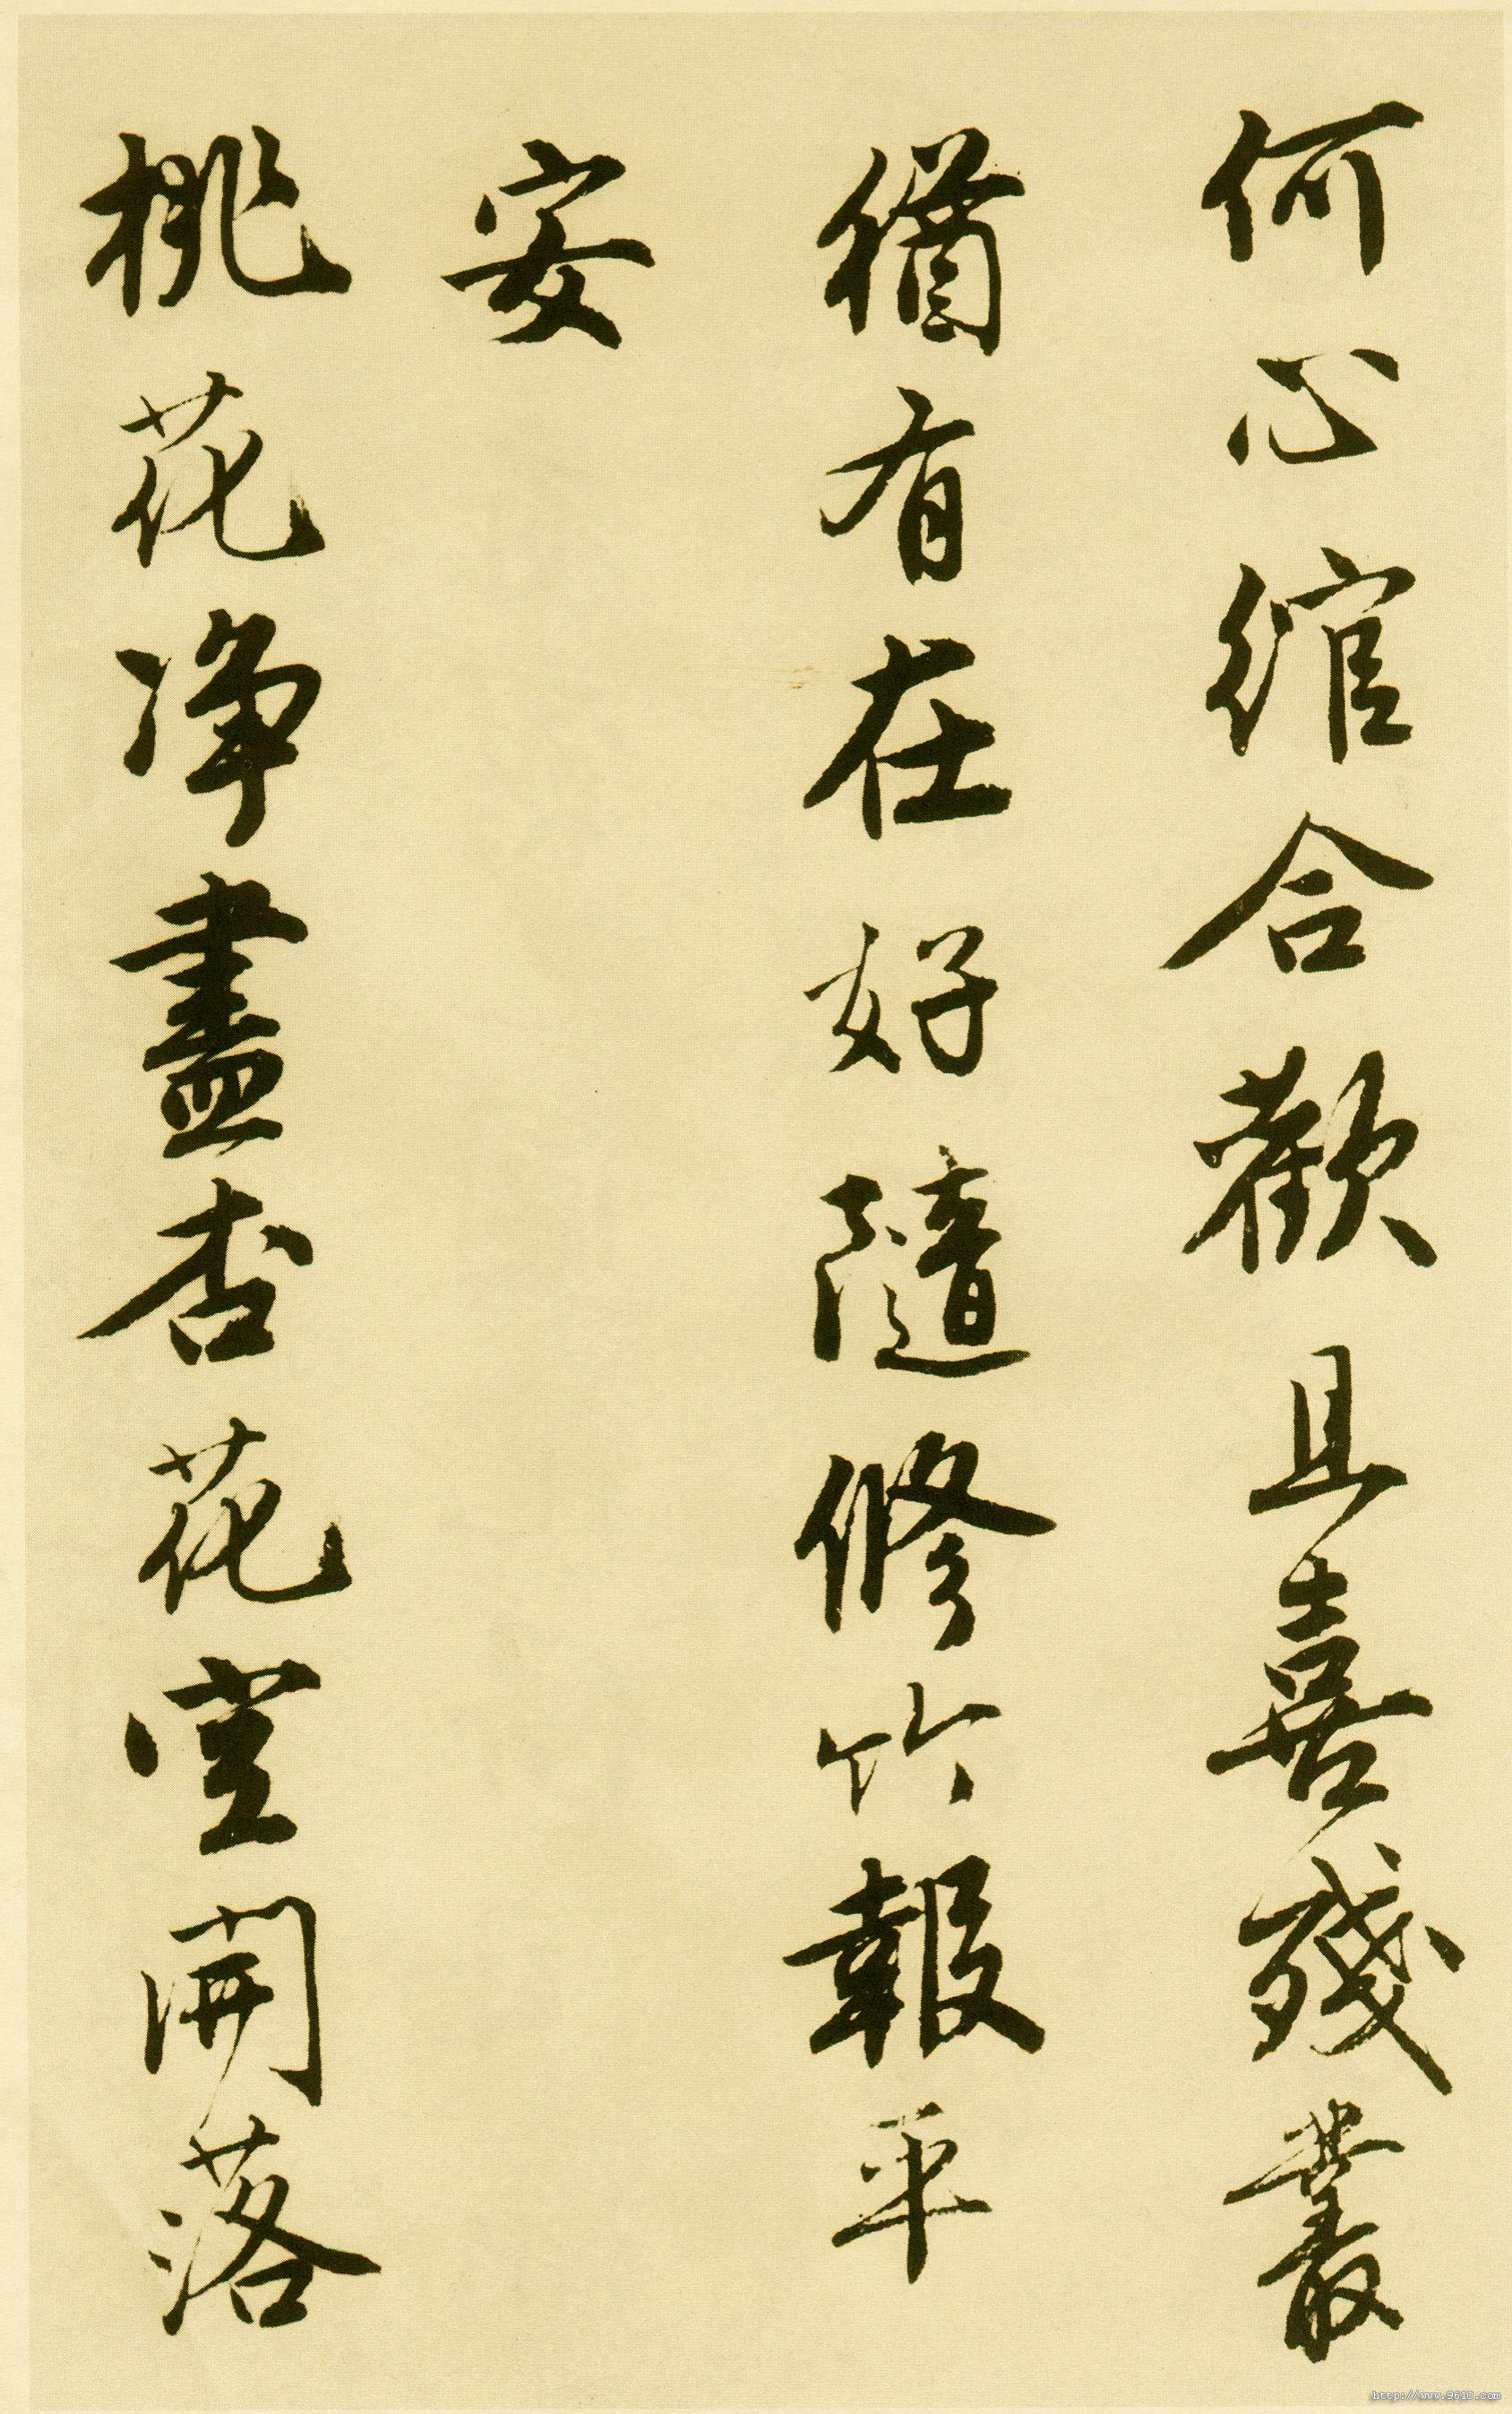 何心綰合歡且喜殘叢
猶有在好隨修竹報平
安
桃花淨盡杏花空開落
http://www.9610.com